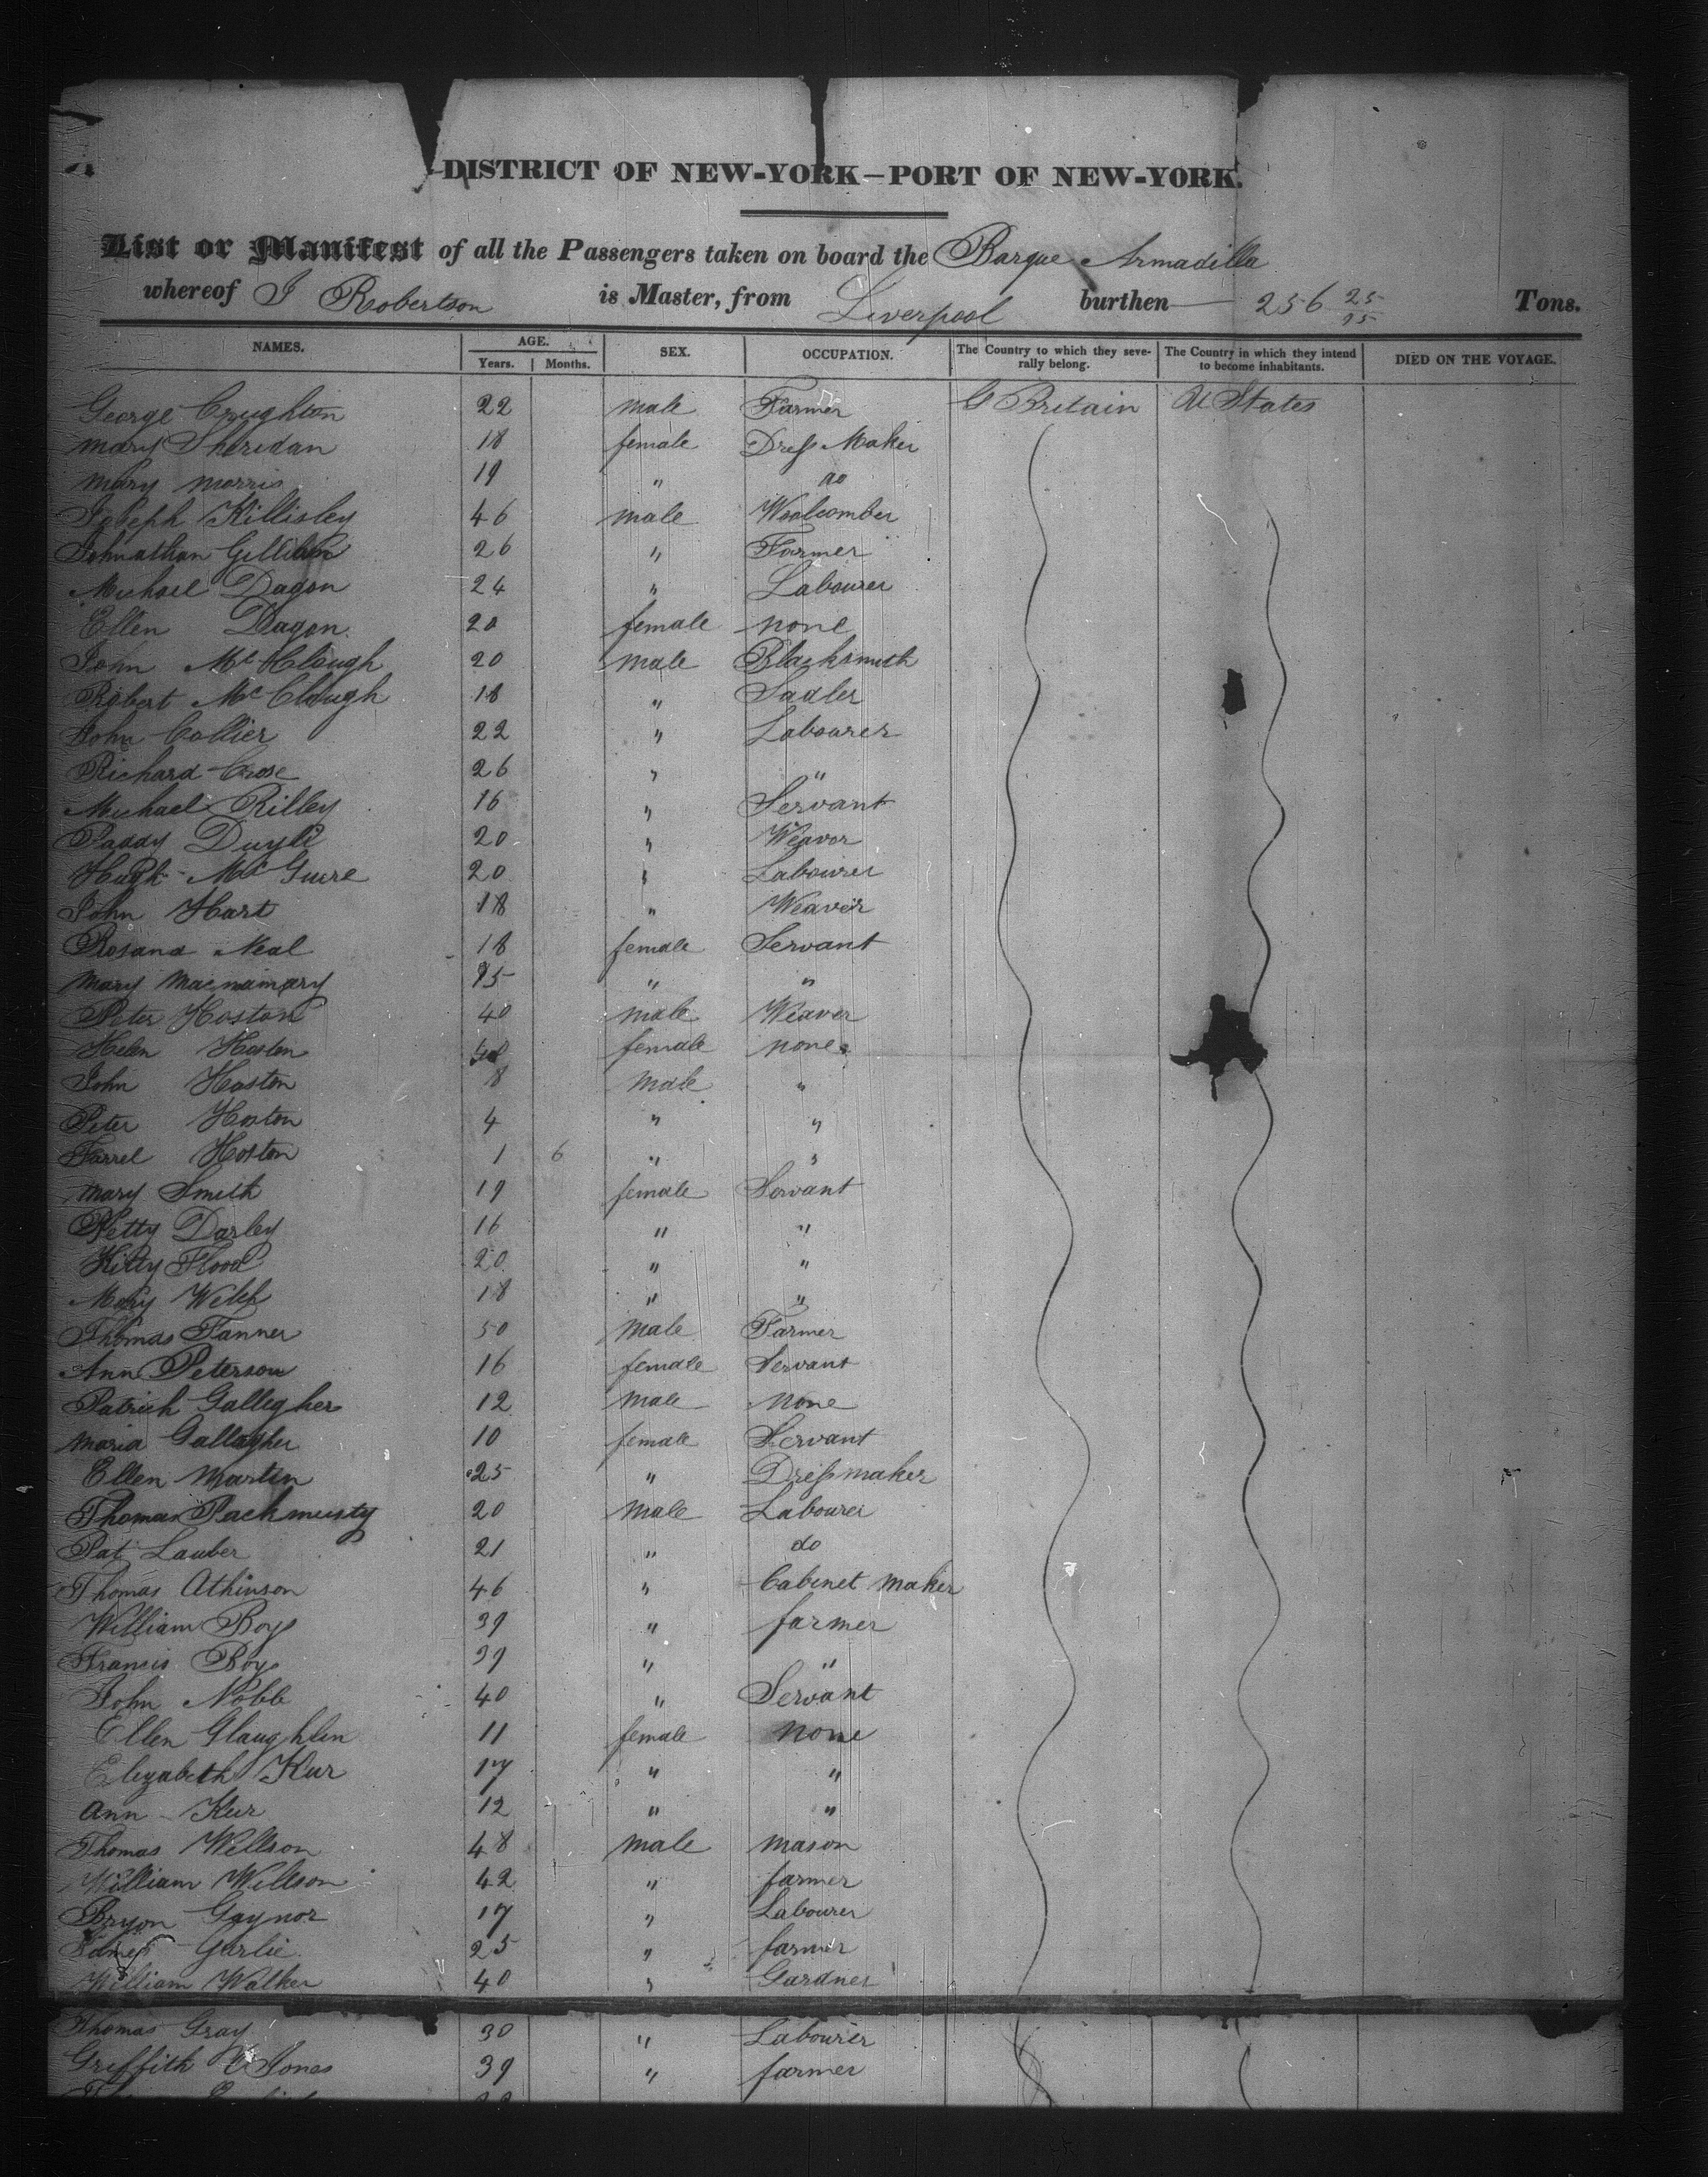 DISTRICT OF NEW-YORK—PORT OF NEW-YORK.
List or Manifest of all the Passengers taken on board the Barque Armadilla
whereof J Robertson is Master, from Liverpool burthen 256 25/95 Tons.
NAMES. AGE. Years. Months. SEX. OCCUPATION. The Country to which they severally belong. The Country in which they intend to become inhabitants. DIED ON THE VOYAGE.
George Crughton 22 male Farmer G Britain U States
Mary Sheridan 18 female Dress Maker
Mary Morris 19 " do
Joseph Killisley 46 male Woolcomber
Johnathan 26 " Farmer
Michael Dagon 24 " Labourer
Ellen Dagon 20 female none
John McClough 20 male Blacksmith
Robert McClough 18 " Sadler
John Collier 22 " Labourer
Richard Crose 26 " "
Michael Rilley 16 " Servant
Paddy Duyle 20 " Weavor
Hugh McGuire 20 " Labourer
John Hart 18 " Weaver
Rosana Neal 18 female Servant
Mary Macnamary 15 " "
Peter Hoston 40 male Weaver
Helen Hoston female none
John Hoston 8 male "
Peter Hoston 4 " "
Farrel Hoston 1 6 " "
Mary Smith 19 female Servant
Darley 16 " "
Kitty Flood 20 " "
Mary Webb 18 " "
Thomas Fanner 50 male Farmer
Ann Peterson 16 female Servant
Patrick Gallegher 12 male none
Maria Gallagher 10 female Servant
Ellen Martin 25 " Dressmaker
Thomas Packmusty 20 male Labourer
Pat Lauber 21 " do
Thomas Atkinson 46 " Cabinet maker
William Boys 39 " farmer
Francis Boys 39 " "
John Nobb 40 " Servant
Ellen Glaughlin 11 female none
Elizabeth Kur 17 " "
Ann Kur 12 " "
Thomas Willson 48 male mason
William Willson 42 " farmer
Bryon Gaynor 17 " Labourer
James Garlie 25 " farmer
William Walker 40 " Gardner
Thomas Gray 30 " Labourer
Griffith Jones 39 " farmer